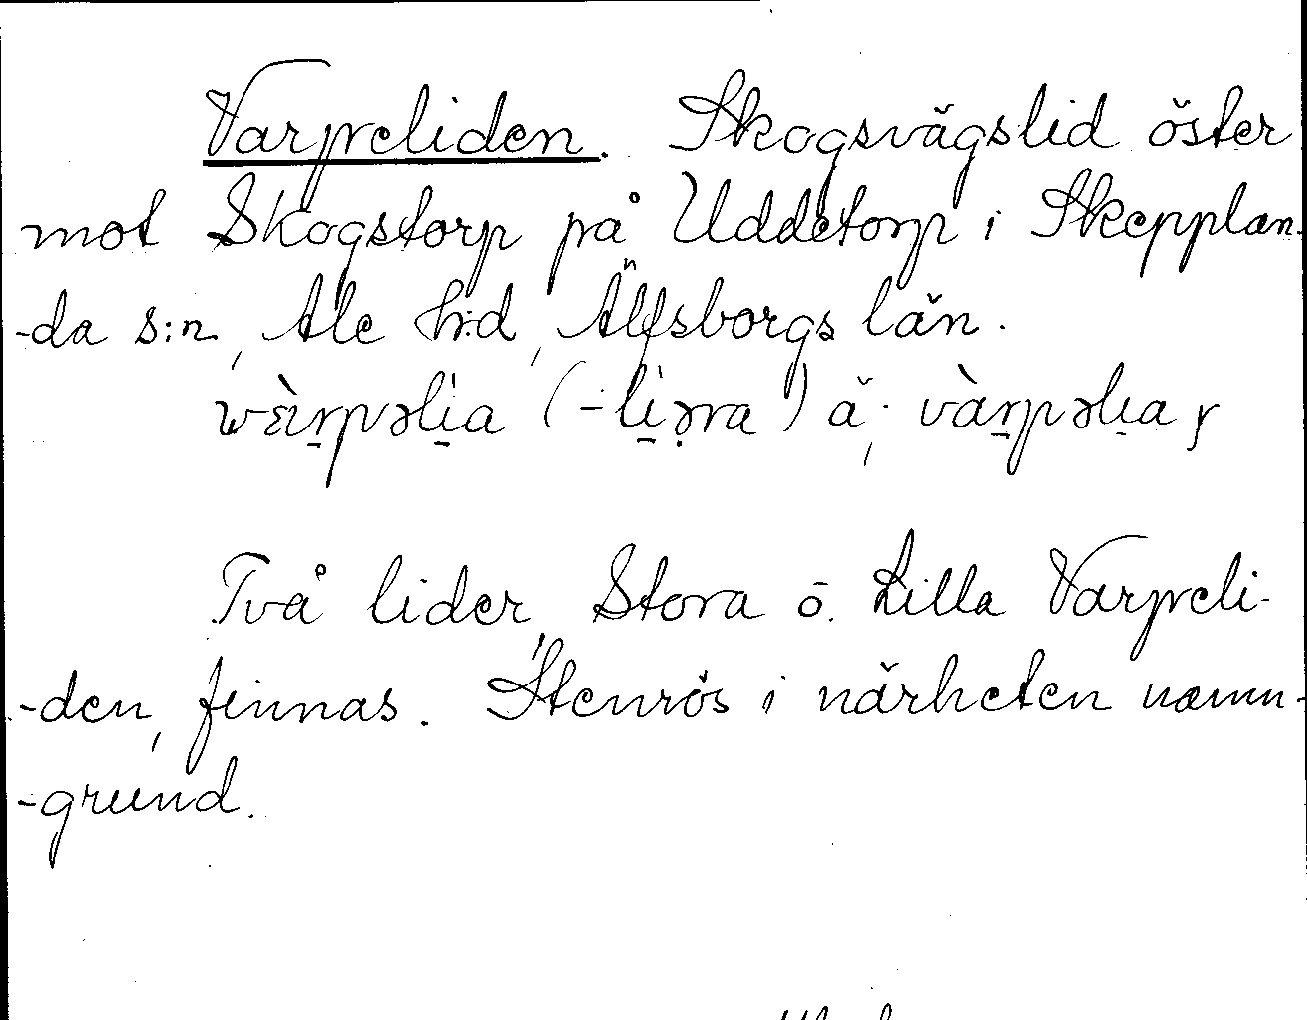 Varpeliden. Skogsvägslid öster
mot Skogstorp på Uddetorp i Skepplan-
-da s:n, Ale h:d, Älfsborgs län.
(-li̠əra) ä;
Två lider, Stora o. Lilla Varpeli-
-den, finnas. Stenrös i närheten namn-
-grund.